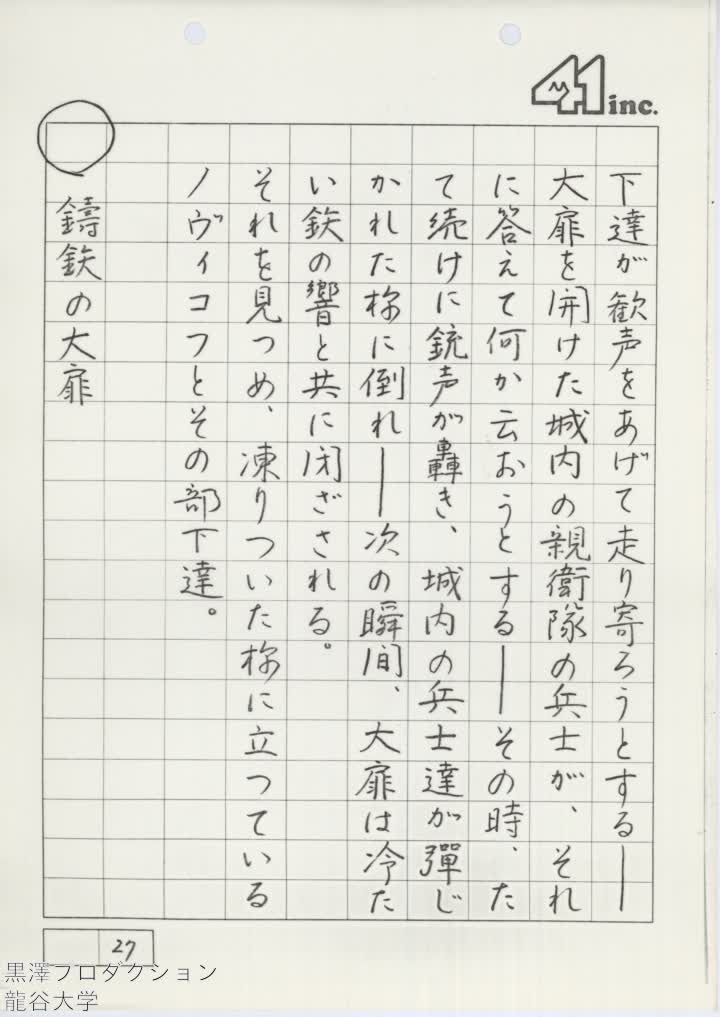 41 inc.
下達が歓声をあげて走り寄ろうとする——
大扉を開けた城内の親衛隊の兵士が、それ
に答えて何か云おうとする——その時、た
て続けに銃声が轟き、城内の兵士達が彈じ
かれた様に倒れ——次の瞬間、大扉は冷た
い鉄の響と共に閉ざされる。
それを見つめ、凍りついた様に立っている
ノヴィコフとその部下達。
鋳鉄の大扉
27
黒澤プロダクション
龍谷大学